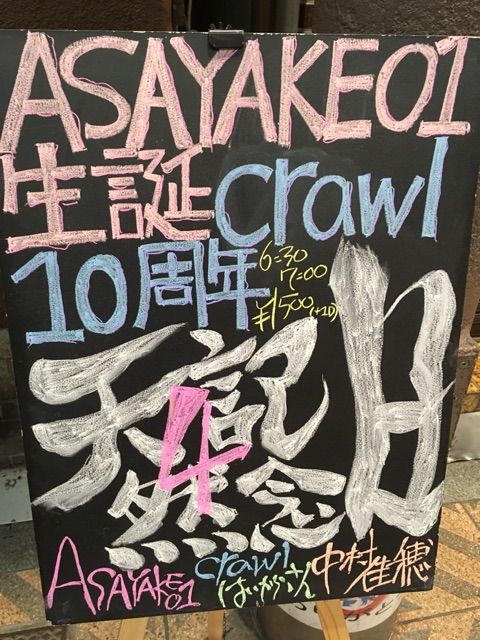 ASAYAKE01
生誕crawl
10周年
6:30
7:00
¥1500(+1D)
天然記念日
4
ASAYAKE01
crawl
はいからさん
中村佳穂